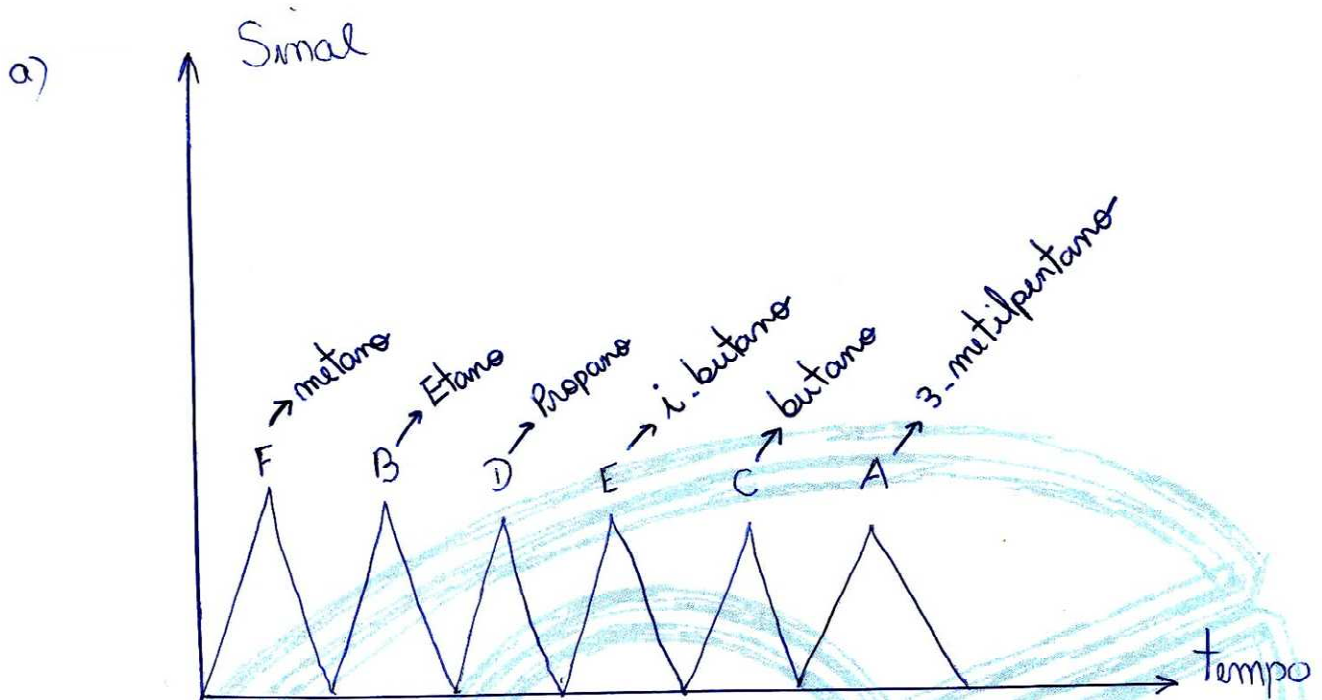 a)
Sinal
F → metano
B → Etano
D → Propano
E → i-butano
C → butano
A → 3-metilpentano
tempo